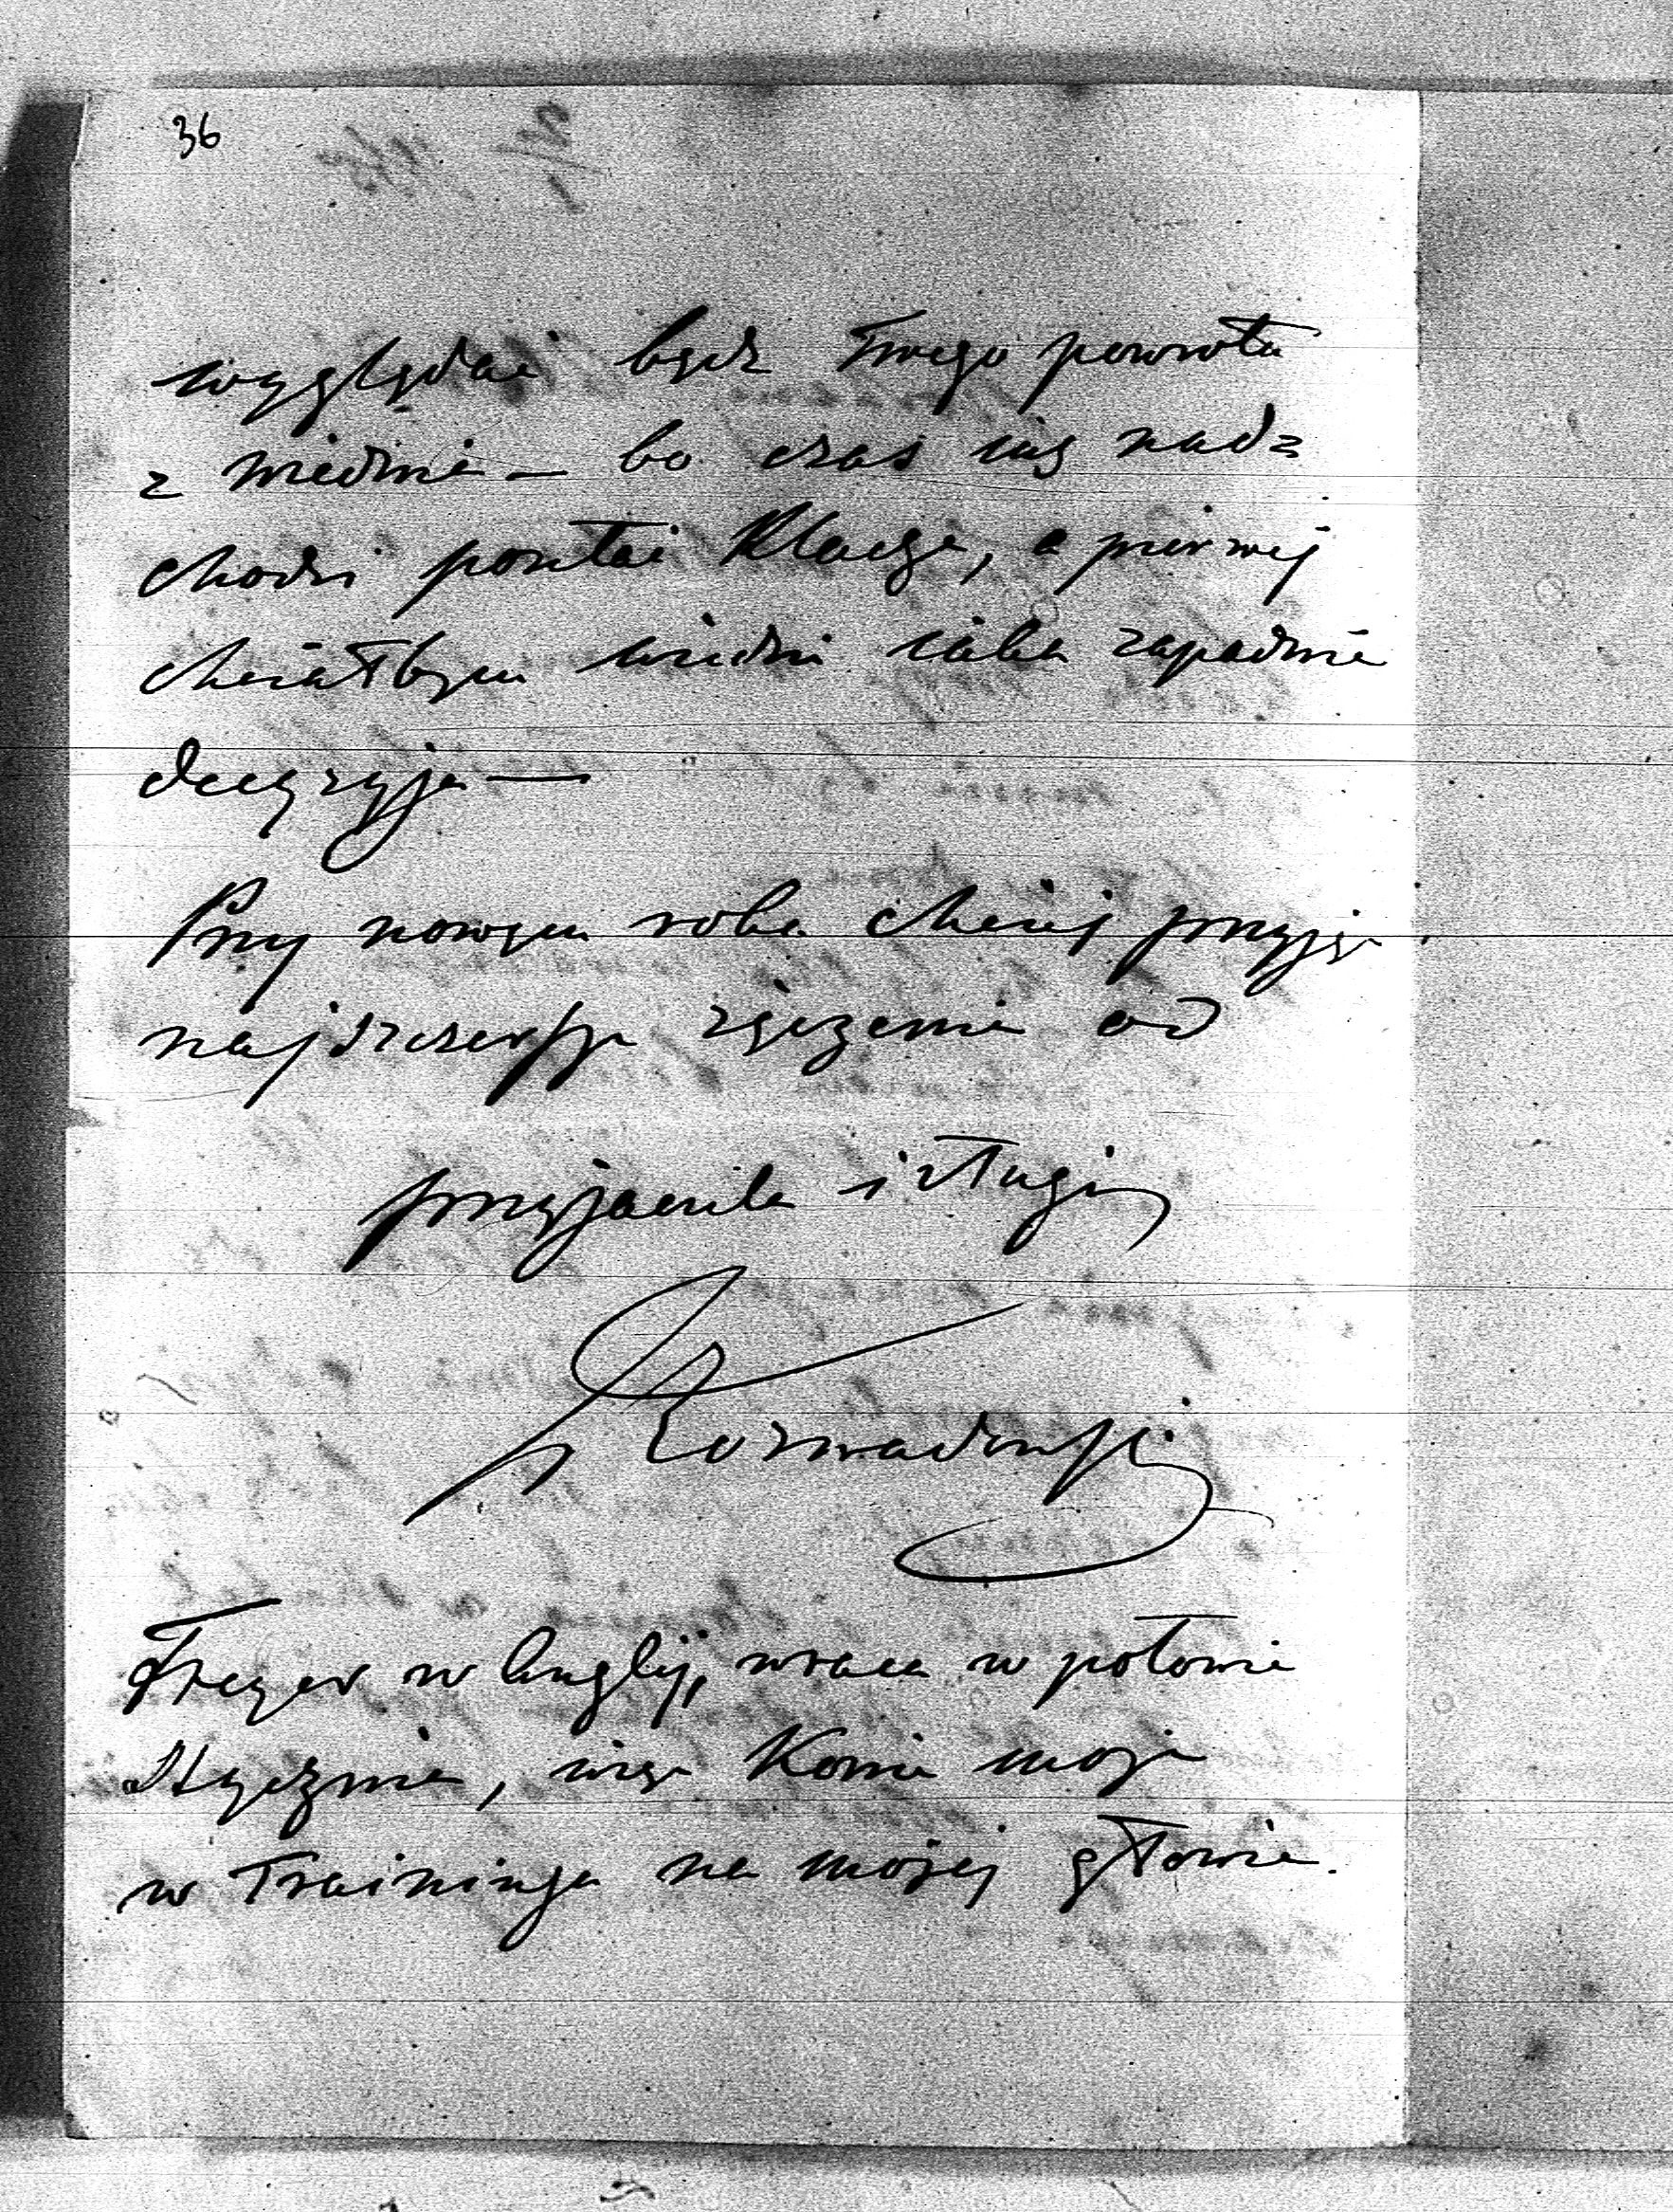 36
wyglądać będę Twego powrotu
z Wiednia – bo czas się nad=
chodzi posełać Klacze, a pierwej
chciałbym wiedzi jaka zapadnie
decyzyja —
Przy nowym roku chciej przyjąć
najszczersze życzenia od
przyjaciela i sługi
Rozwadowski
w Anglij, wraca w połowie
Stycznia, więc Konie moje
w Trainingu na mojej głowie.